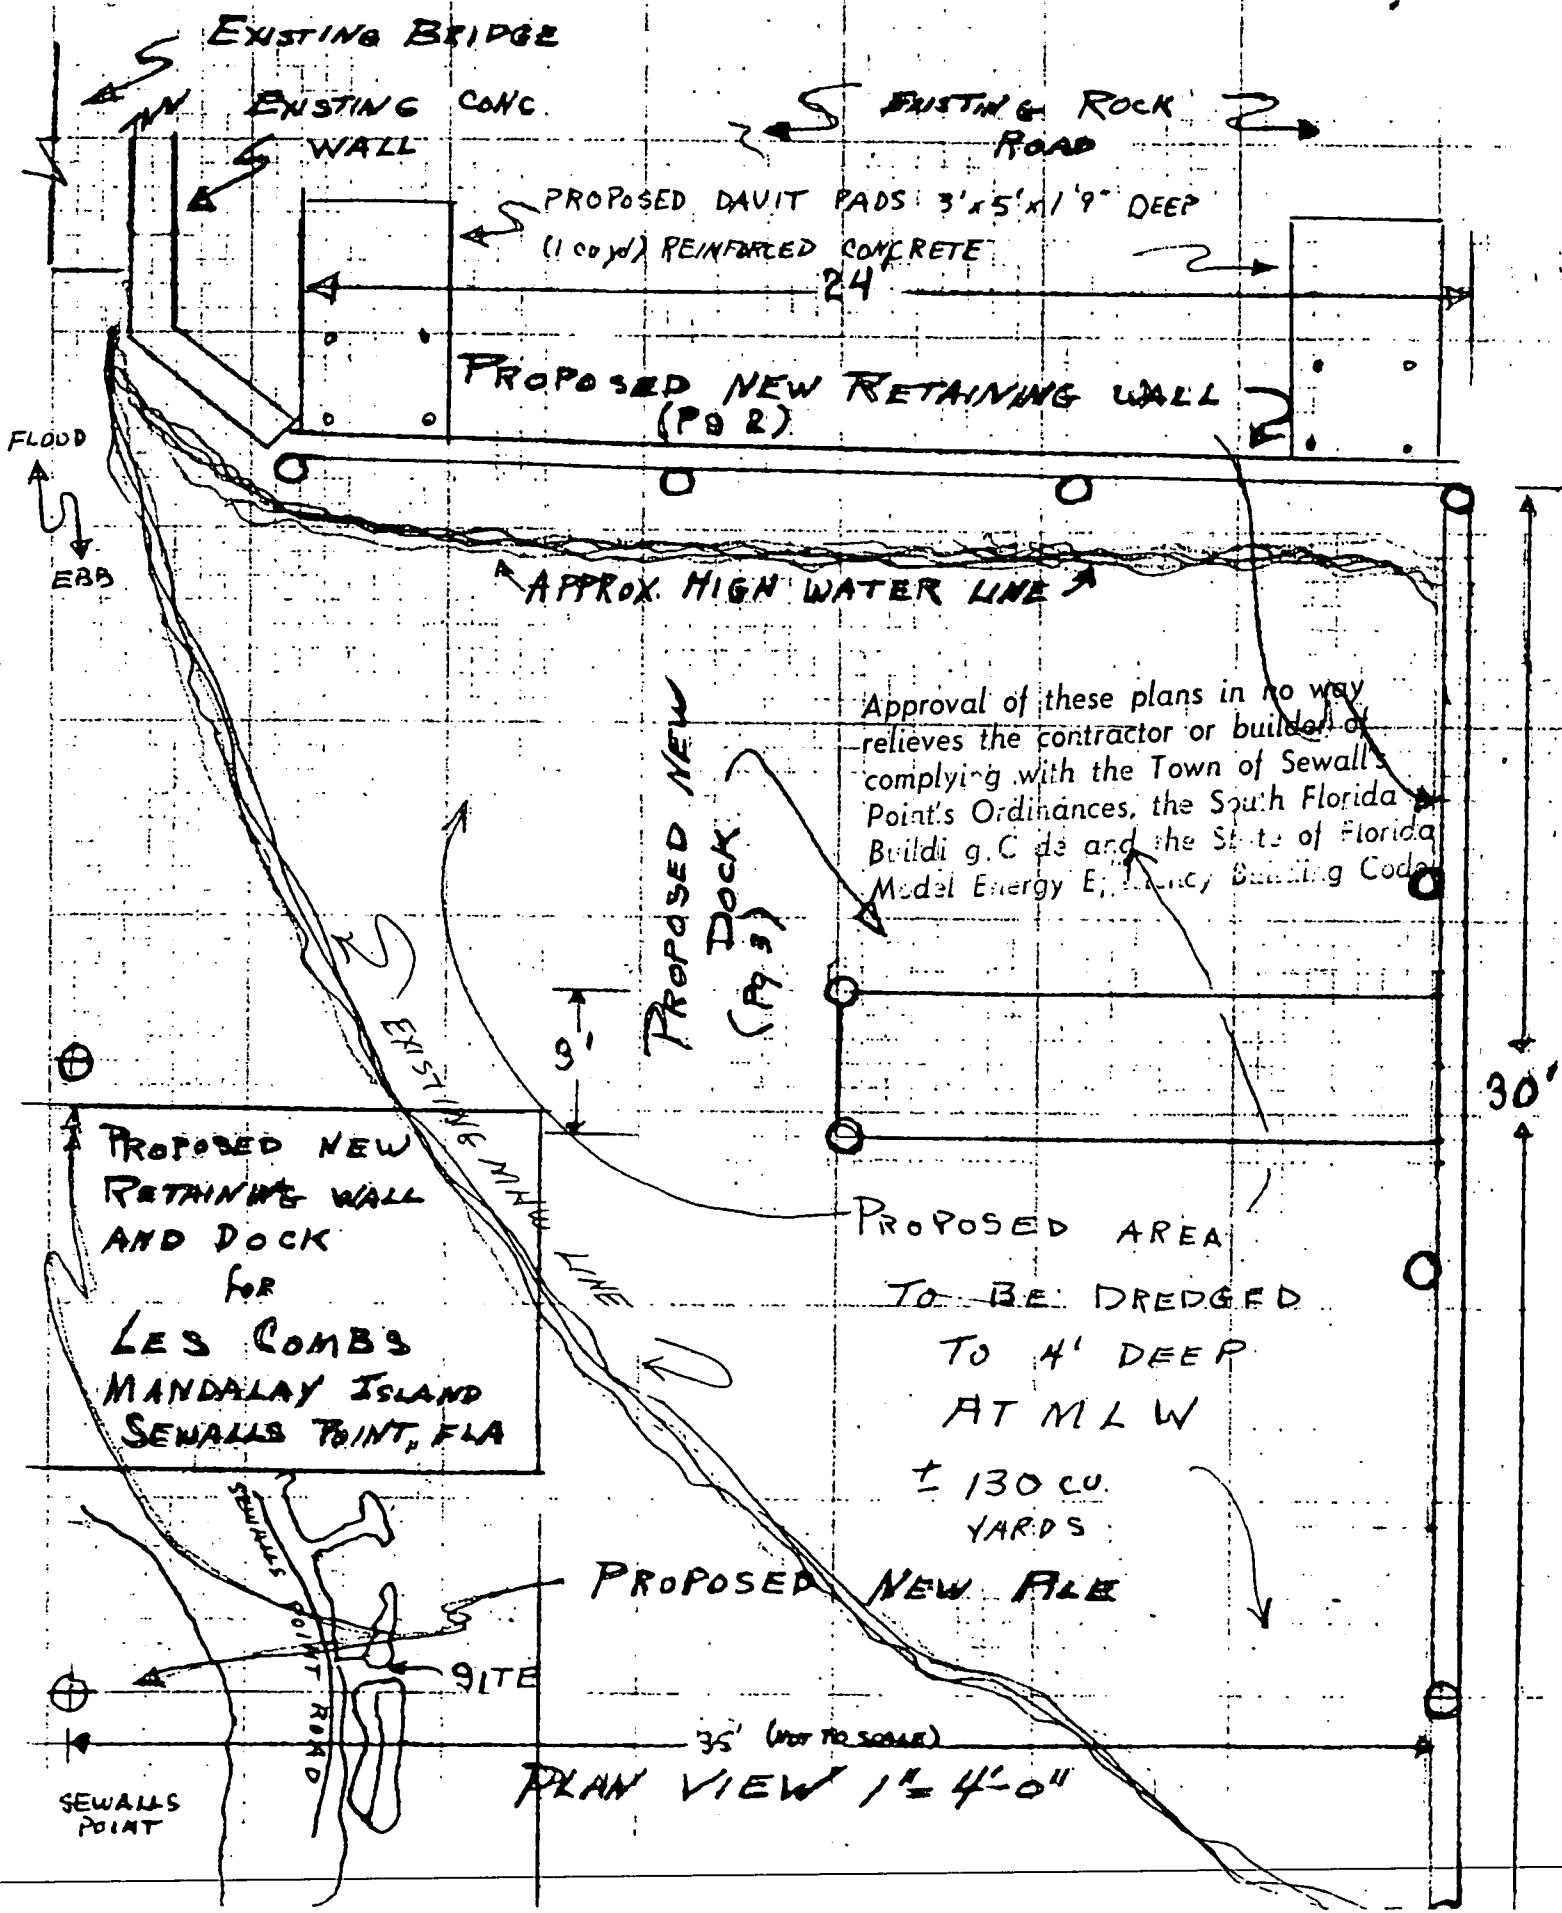 EXISTING BRIDGE
EXISTING CONC.
WALL
EXISTING ROCK
ROAD
PROPOSED DAVIT PADS: 3'x5'x1'9" DEEP
(1 co yd) REINFORCED CONCRETE
24'
PROPOSED NEW RETAINING WALL
(Pg 2)
FLOUD
EBB
APPROX. HIGH WATER LINE
Approval of these plans in no way
relieves the contractor or builder of
complying with the Town of Sewall's
Point's Ordinances, the South Florida
Buildi g C de and the St te of Florida
Model Energy Building Code
PROPOSED NEW
DOCK
(Pg 3)
3'
30'
EXISTING MHW LINE
PROPOSED NEW
RETAINING WALL
AND DOCK
FOR
LES COMBS
MANDALAY ISLAND
SEWALLS POINT, FLA
PROPOSED AREA
TO BE DREDGED
TO 4' DEEP
AT MLW
± 130 CU.
YARDS
PROPOSED NEW PILE
SEWALLS POINT ROAD
SITE
35' (NOT TO SCALE)
PLAN VIEW 1"=4'-0"
SEWALLS
POINT